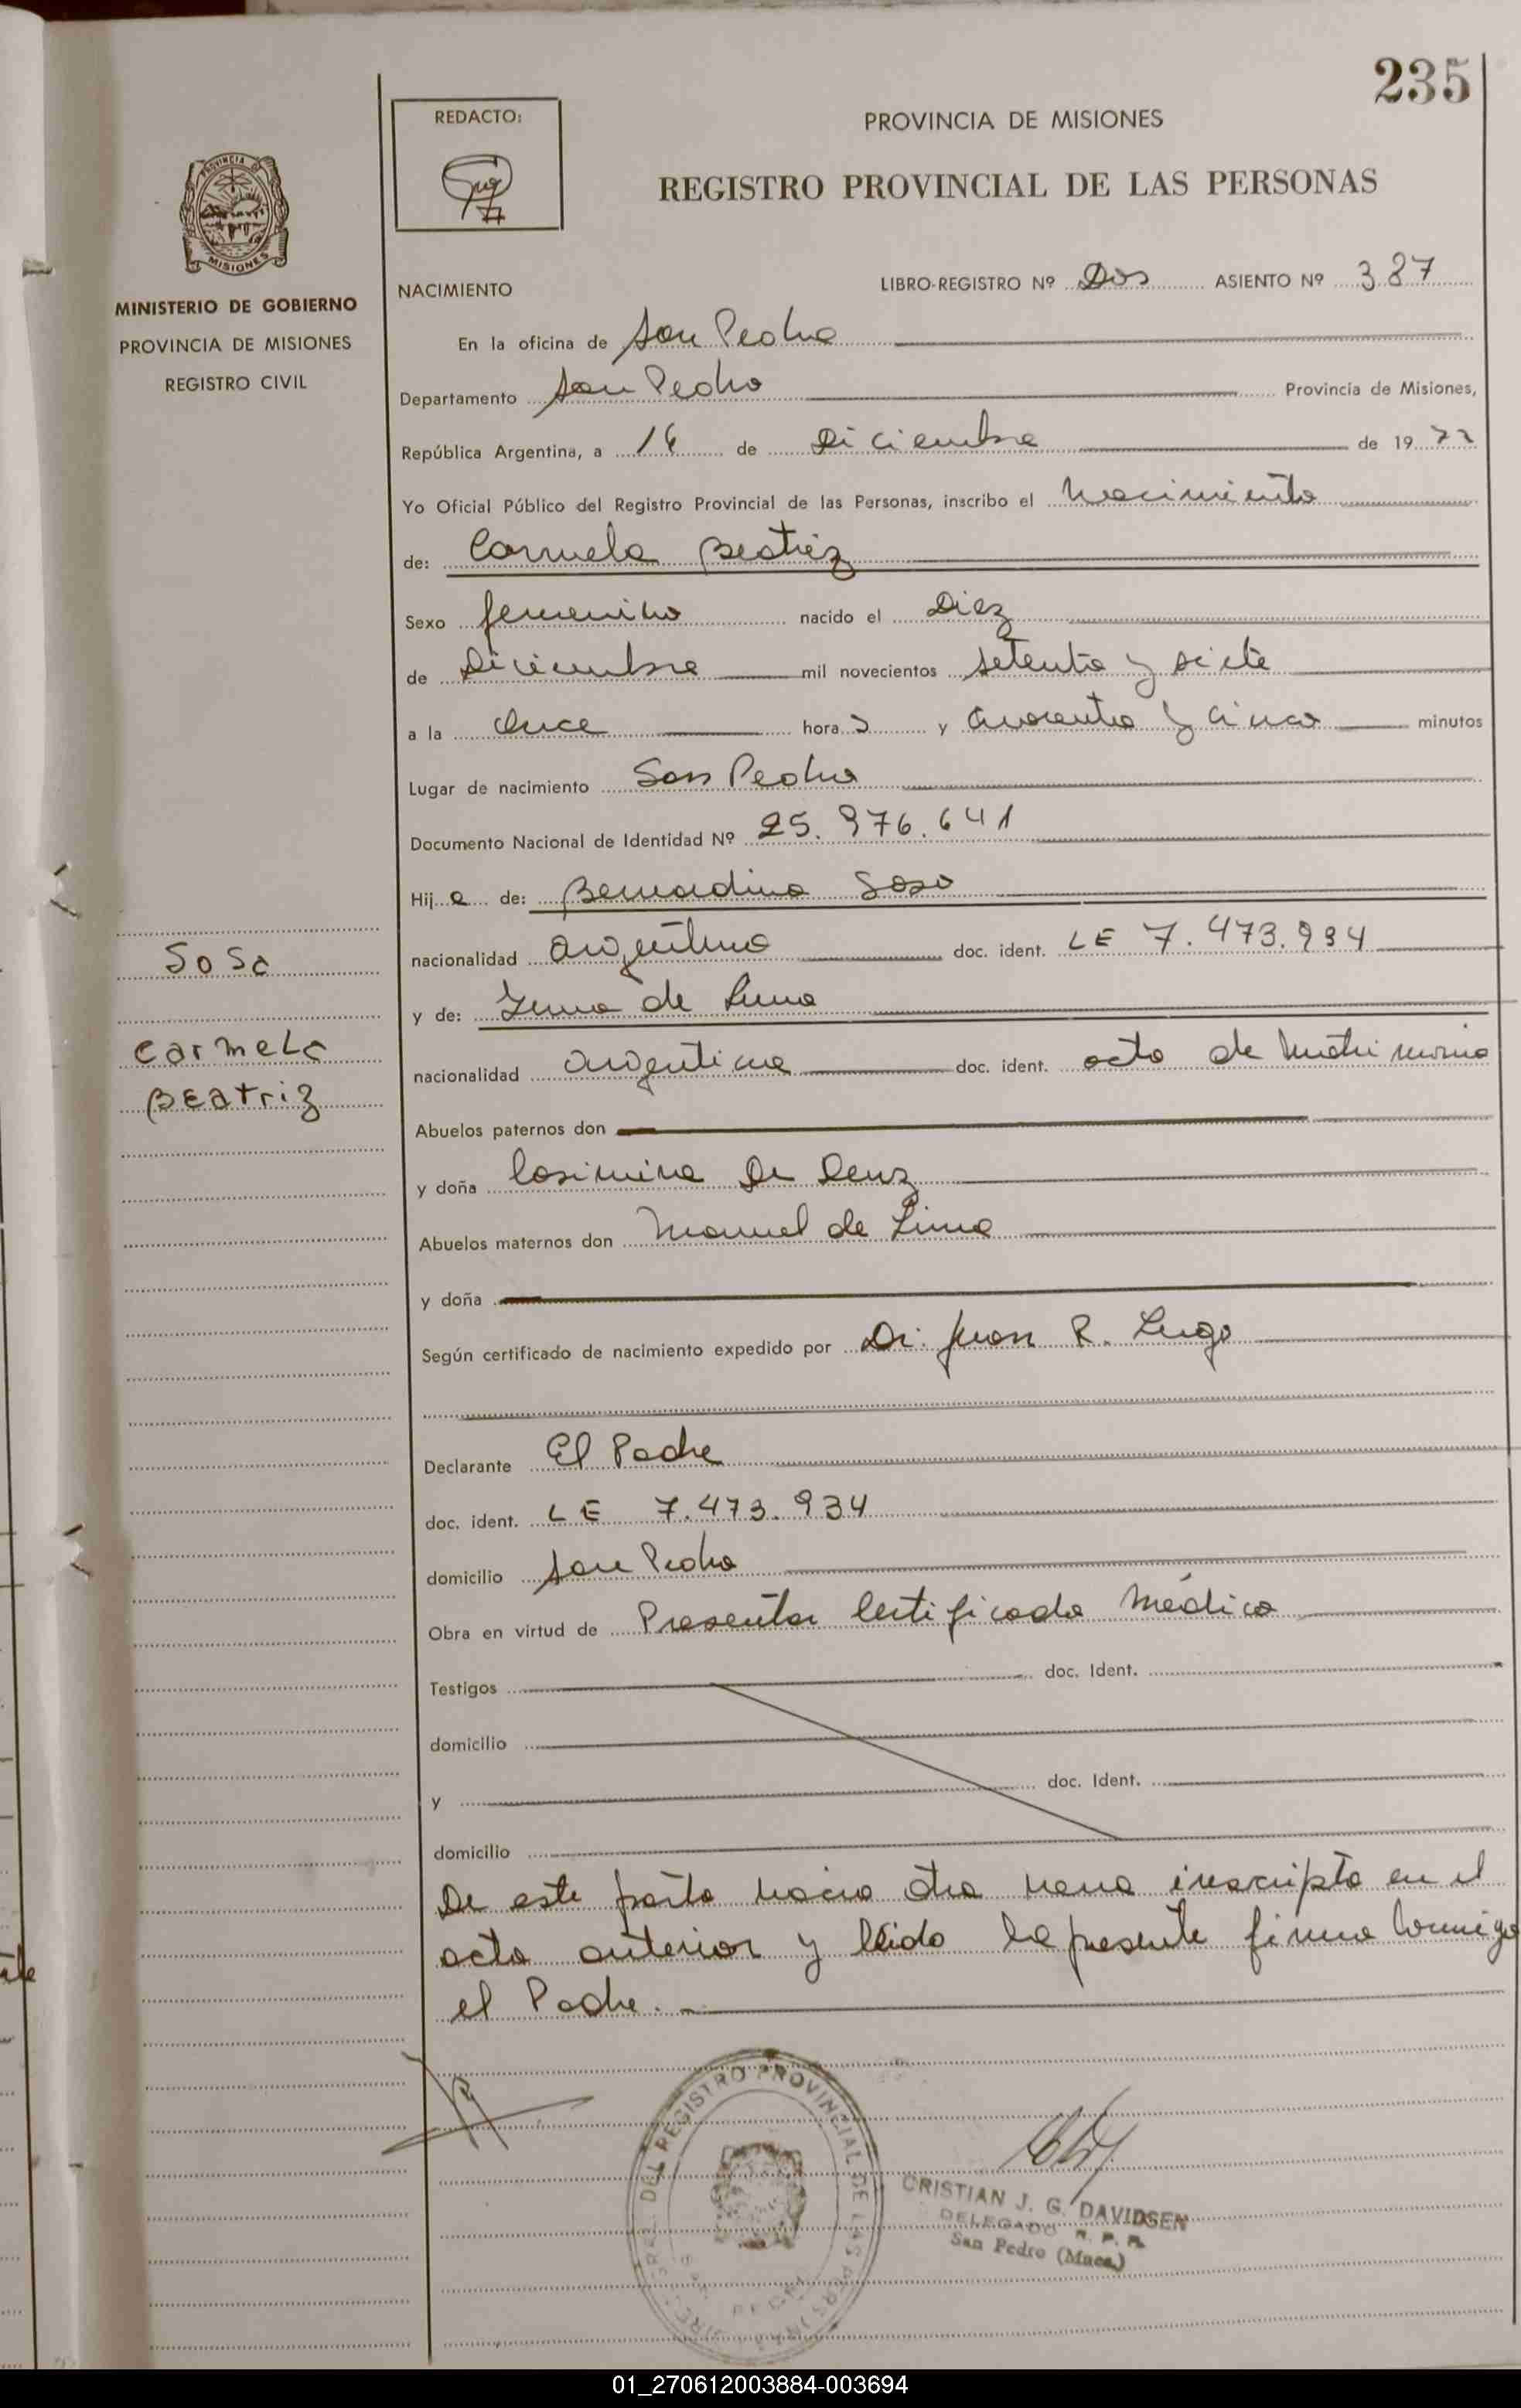 235
REDACTO:
PROVINCIA DE MISIONES
REGISTRO PROVINCIAL DE LAS PERSONAS
PROVINCIA DE
MISIONES
MINISTERIO DE GOBIERNO
PROVINCIA DE MISIONES
REGISTRO CIVIL
NACIMIENTO
LIBRO-REGISTRO Nº Dos ASIENTO Nº 387
En la oficina de San Pedro
Departamento San Pedro Provincia de Misiones,
República Argentina, a 14 de Diciembre de 1977
Yo Oficial Público del Registro Provincial de las Personas, inscribo el Nacimiento
de: Carmela Beatriz
Sexo femenino nacido el Diez
de Diciembre mil novecientos setenta y siete
a la once horas y cuarenta y cinco minutos
Lugar de nacimiento San Pedro
Documento Nacional de Identidad Nº 25.976.641
Hija de: Bernardino Sosa
nacionalidad argentino doc. ident. LE 7.473.934
y de: de
nacionalidad argentina doc. ident. acta de Matrimonio
Abuelos paternos don
y doña Casimira Da
Abuelos maternos don Manuel de Lima
y doña
Según certificado de nacimiento expedido por Dr. Juan R. Lugo
Declarante El Padre
doc. ident. LE 7.473.934
domicilio San Pedro
Obra en virtud de Presentar Certificado Médico
Testigos doc. Ident.
domicilio
y doc. Ident.
domicilio
De este parto nacio otra nena inscripta en el
acta anterior y leido la presente firma Conmigo
el Padre.
SOSA
Carmela
Beatriz
DEL REGISTRO PROVINCIAL DE LAS PERSONAS
CRISTIAN J. G. DAVIDSEN
DELEGADO R. P. P.
San Pedro (Mnes.)
01_270612003884-003694